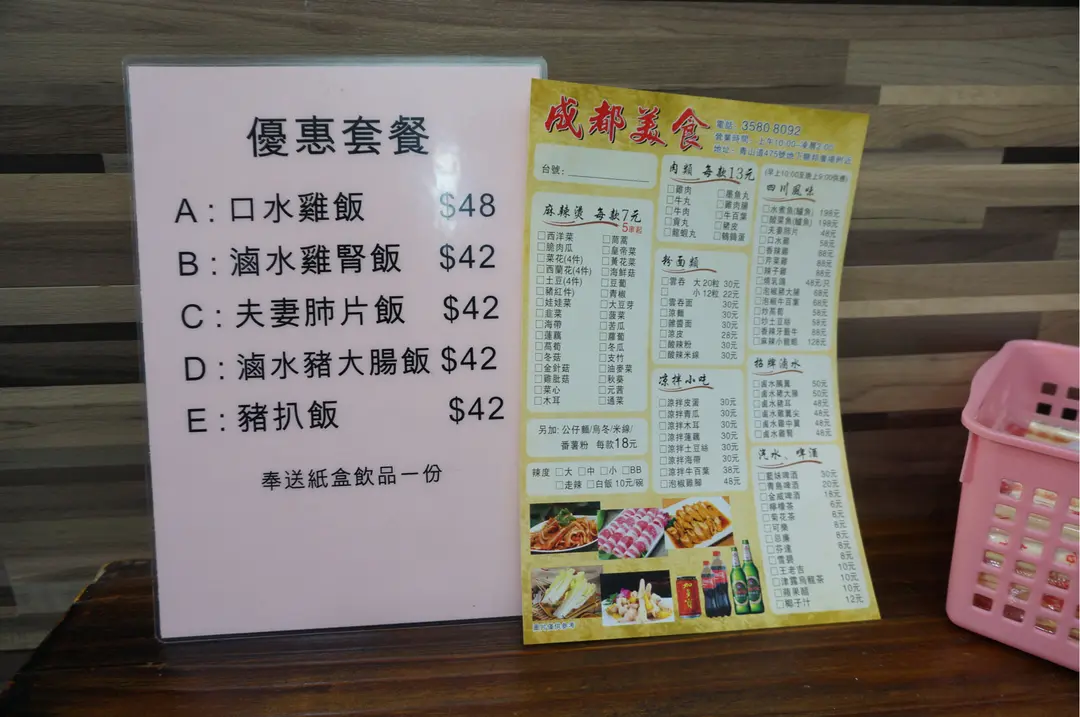 優惠套餐
A：口水雞飯 $48
B：滷水雞腎飯 $42
C：夫妻肺片飯 $42
D：滷水豬大腸飯 $42
E：豬扒飯 $42
奉送紙盒飲品一份
成都美食
電話：3580 8092
營業時間：上午10:00-凌晨2:00
地址：青山道475號地下
台號：
麻辣燙 每款7元
5串起
□西洋菜
□脆肉瓜
□菜花(4件)
□西蘭花(4件)
□土豆(4件)
□豬紅(件)
□娃娃菜
□韭菜
□海帶
□蓮藕
□萵筍
□冬菇
□金針菇
□雞肶菇
□菜心
□木耳
□茼蒿
□皇帝菜
□黃花菜
□海鮮菇
□豆苗
□青椒
□大豆芽
□菠菜
□苦瓜
□蘿蔔
□冬瓜
□支竹
□油麥菜
□秋葵
□元茜
□通菜
另加: 公仔麵/烏冬/米線/
番薯粉 每款18元
辣度 □大 □中 □小 □BB
□走辣 □白飯 10元/碗
肉類 每款13元
□雞肉
□牛丸
□牛肉
□貢丸
□龍蝦丸
□墨魚丸
□雞肉腸
□牛百葉
□豬皮
□鵪鶉蛋
粉面類
□雲吞 大 20粒 30元
□ 小 12粒 22元
□雲吞面 30元
□涼麵 30元
□雜醬面 30元
□涼皮 28元
□酸辣粉 30元
□酸辣米線 30元
凉拌小吃
□涼拌皮蛋 30元
□涼拌青瓜 30元
□涼拌木耳 30元
□涼拌蓮藕 30元
□涼拌土豆絲 30元
□涼拌海帶 30元
□涼拌牛百葉 38元
□泡椒雞腳 48元
(早上10:00至晚上9:00供應)
四川風味
□水煮魚(鱸魚) 198元
□酸菜魚(鱸魚) 198元
□夫妻肺片 48元
□口水雞 58元
□香辣雞 68元
□芹菜雞 88元
□辣子雞 88元
□燒乳鴿 48元/只
□泡椒豬大腸 68元
□泡椒牛百葉 68元
□炒萵筍 58元
□炒土豆絲 58元
□香辣牙籤牛 88元
□麻辣小龍蝦 128元
招牌滷水
□鹵水鴨翼 50元
□鹵水豬大腸 50元
□鹵水豬耳 48元
□鹵水雞翼尖 48元
□鹵水雞中翼 48元
□鹵水雞腎 48元
汽水、啤酒
□藍妹啤酒 30元
□青島啤酒 20元
□金威啤酒 18元
□檸檬茶 6元
□菊花茶 6元
□可樂 8元
□忌廉 8元
□芬達 8元
□雪碧 8元
□王老吉 10元
□津露烏龍茶 10元
□蘋果醋 10元
□椰子汁 12元
圖片僅供參考